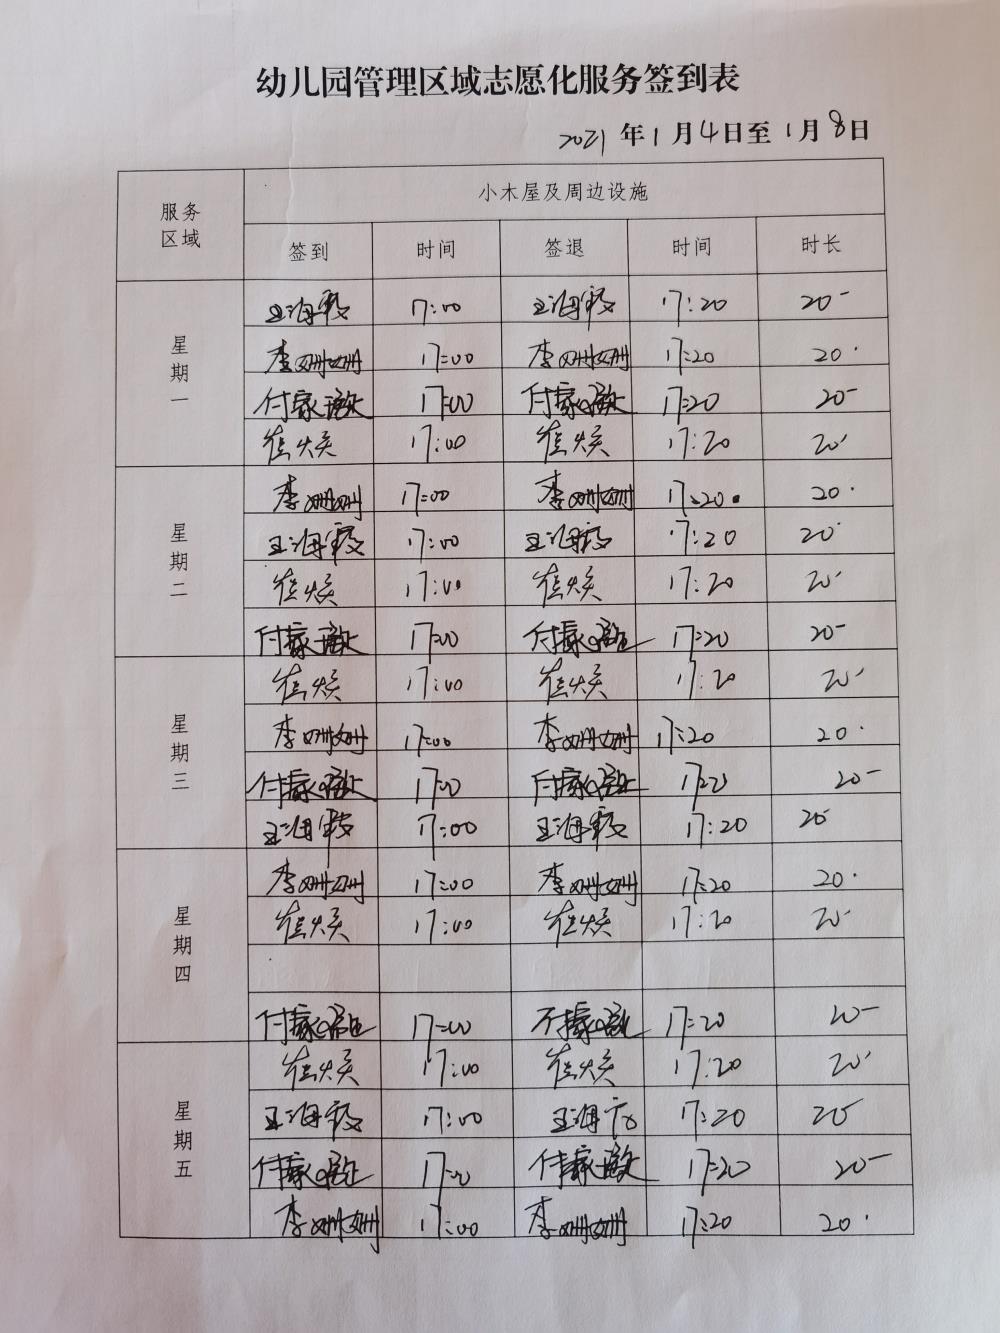 幼儿园管理区域志愿化服务签到表
2021年1月4日至1月8日
服务区域 小木屋及周边设施
签到 时间 签退 时间 时长
星期一
王海霞 17:00 王海霞 17:20 20'
李姗姗 17:00 李姗姗 17:20 20'
付家 17:00 付家 17:20 20'
崔焕 17:00 崔焕 17:20 20'
星期二
李姗姗 17:00 李姗姗 17:20 20'
王海霞 17:00 王海霞 17:20 20'
崔焕 17:00 崔焕 17:20 20'
付家 17:00 付家 17:20 20'
星期三
崔焕 17:00 崔焕 17:20 20'
李姗姗 17:00 李姗姗 17:20 20'
付家 17:00 付家 17:20 20'
王海霞 17:00 王海霞 17:20 20'
星期四
李姗姗 17:00 李姗姗 17:20 20'
崔焕 17:00 崔焕 17:20 20'
付家 17:00 付家 17:20 20'
星期五
崔焕 17:00 崔焕 17:20 20'
王海霞 17:00 王海霞 17:20 20'
付家 17:00 付家 17:20 20'
李姗姗 17:00 李姗姗 17:20 20'